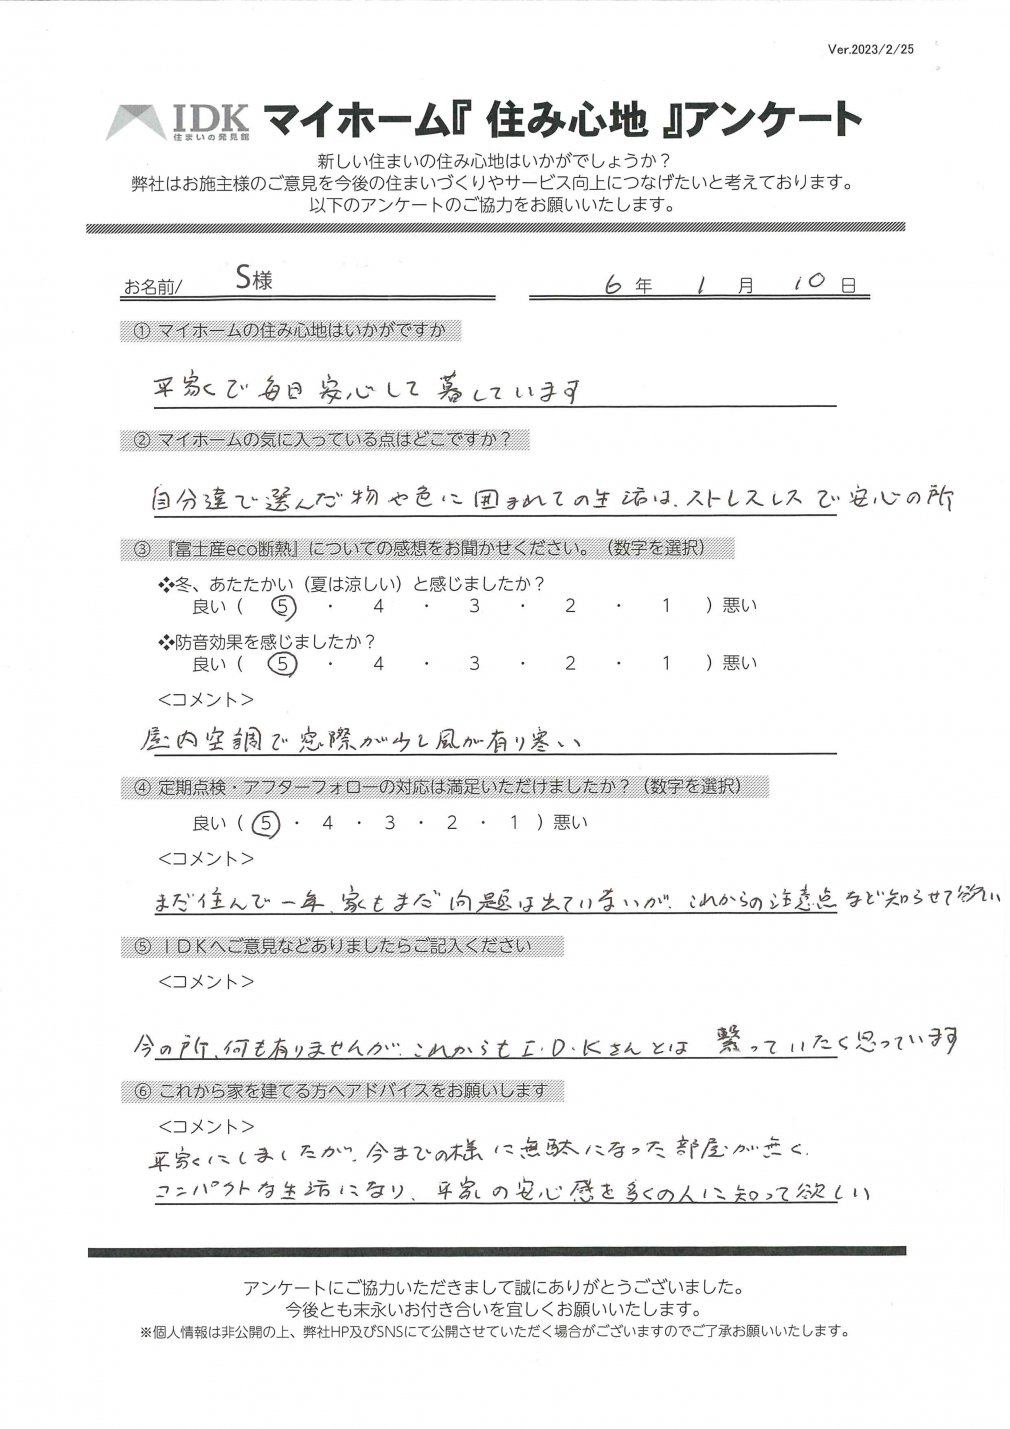 Ver.2023/2/25
IDK 住まいの発見館 マイホーム『 住み心地 』アンケート
新しい住まいの住み心地はいかがでしょうか？
弊社はお施主様のご意見を今後の住まいづくりやサービス向上につなげたいと考えております。
以下のアンケートのご協力をお願いいたします。
お名前/ S様 6 年 1 月 10 日
① マイホームの住み心地はいかがですか
平家で毎日安心して暮しています
② マイホームの気に入っている点はどこですか？
自分達で選んだ物や色に囲まれての生活は、ストレスレスで安心の所
③ 『富士産eco断熱』についての感想をお聞かせください。（数字を選択）
❖冬、あたたかい（夏は涼しい）と感じましたか？
良い（ 5 ・ 4 ・ 3 ・ 2 ・ 1 ）悪い
❖防音効果を感じましたか？
良い（ 5 ・ 4 ・ 3 ・ 2 ・ 1 ）悪い
＜コメント＞
屋内空調で窓際が少し風が有り寒い
④ 定期点検・アフターフォローの対応は満足いただけましたか？（数字を選択）
良い（ 5 ・ 4 ・ 3 ・ 2 ・ 1 ）悪い
＜コメント＞
まだ住んで一年、家もまだ問題は出ていないが、これからの注意点など知らせて欲しい
⑤ ＩＤＫへご意見などありましたらご記入ください
＜コメント＞
今の所、何も有りませんが、これからもI・D・Kさんとは 繋っていたく思っています
⑥ これから家を建てる方へアドバイスをお願いします
＜コメント＞
平家にしましたが、今までの様に無駄になった部屋が無く、
コンパクトな生活になり、平家の安心感を多くの人に知って欲しい
アンケートにご協力いただきまして誠にありがとうございました。
今後とも末永いお付き合いを宜しくお願いいたします。
※個人情報は非公開の上、弊社HP及びSNSにて公開させていただく場合がございますのでご了承お願いいたします。